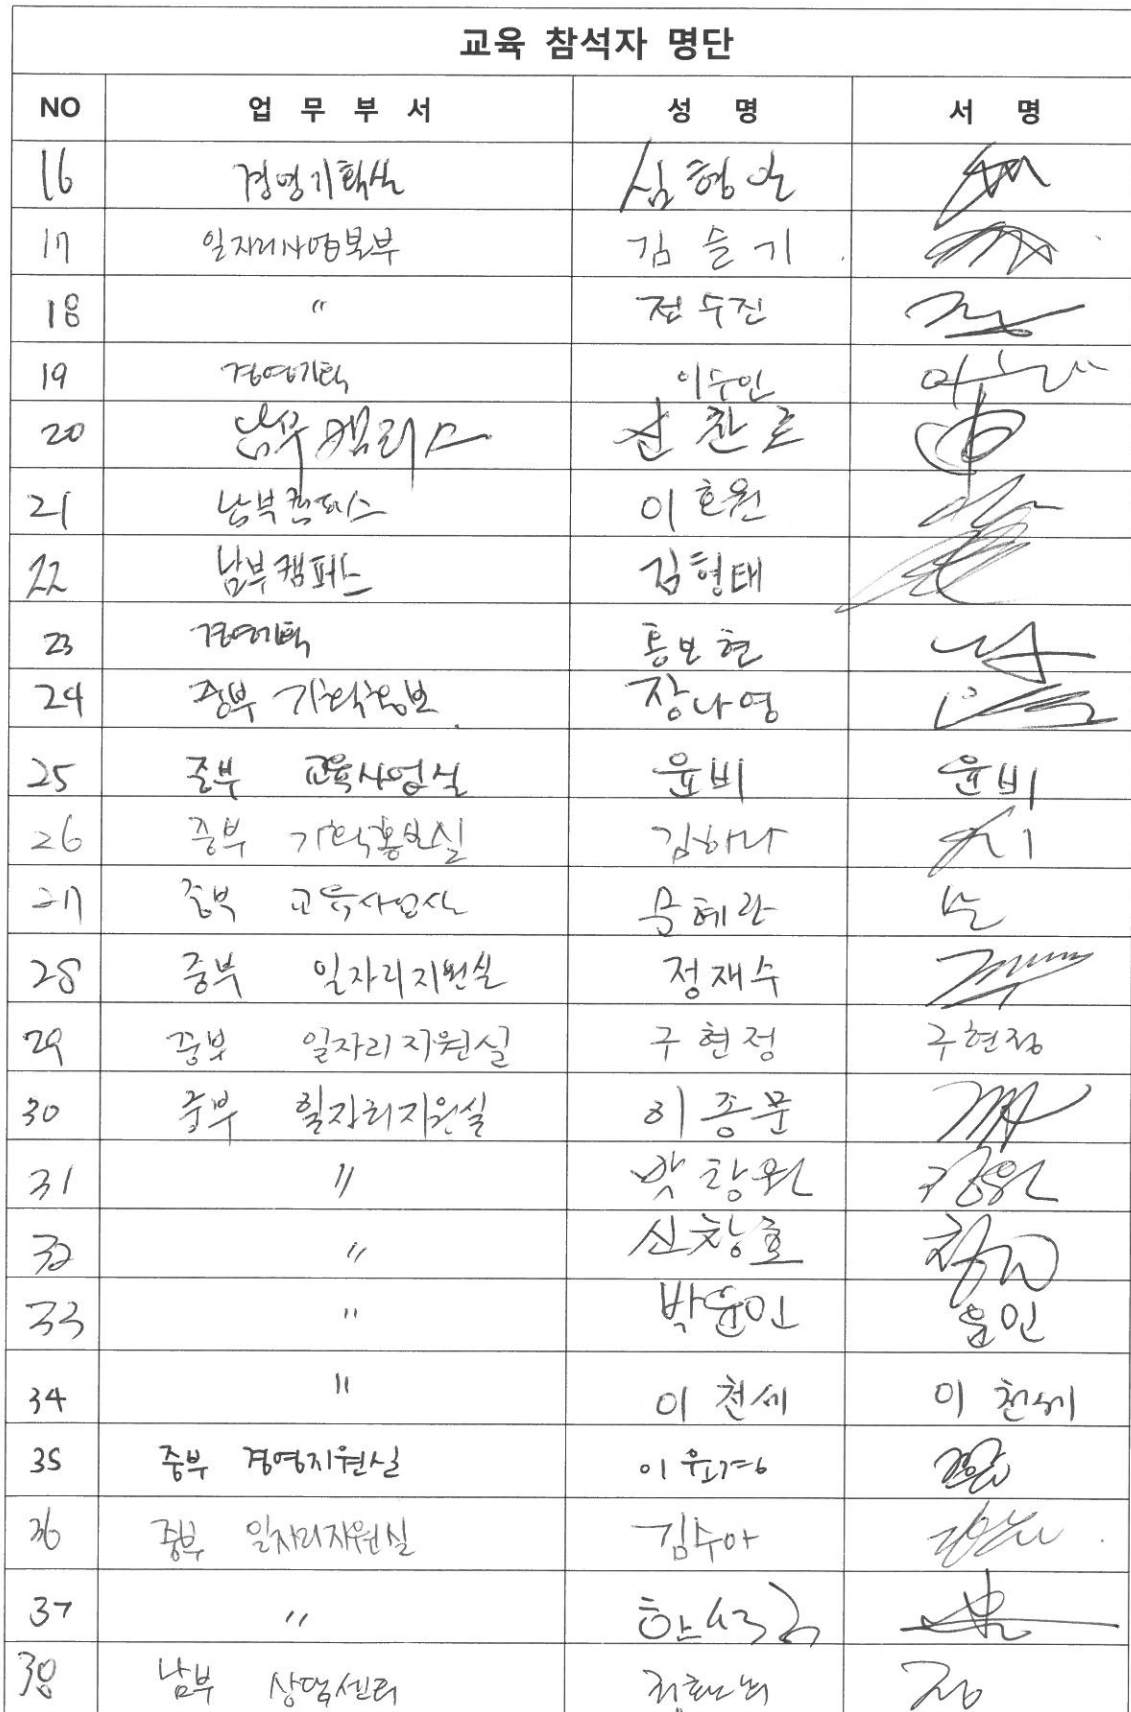 교육 참석자 명단
NO 업 무 부 서 성 명 서 명
16 경영기획실 심형은
17 일자리사업본부 김슬기
18 " 전수진
19 경영기획 이수인
20 남부캠퍼스
21 남부캠퍼스 이호원
22 남부캠퍼스 김형태
23 경영기획 홍보현
24 중부 기획홍보 장나영
25 중부 교육사업실 윤비 윤비
26 중부 기획홍보실 김하나
27 중부 교육사업실 문혜란
28 중부 일자리지원실 정재수
29 중부 일자리지원실 구현정 구현정
30 중부 일자리지원실 이종문
31 " 박창원 창원
32 " 신창호
33 " 박윤인 윤인
34 " 이천세 이천세
35 중부 경영지원실 이윤경
36 중부 일자리지원실 김수아
37 "
38 남부 상담센터